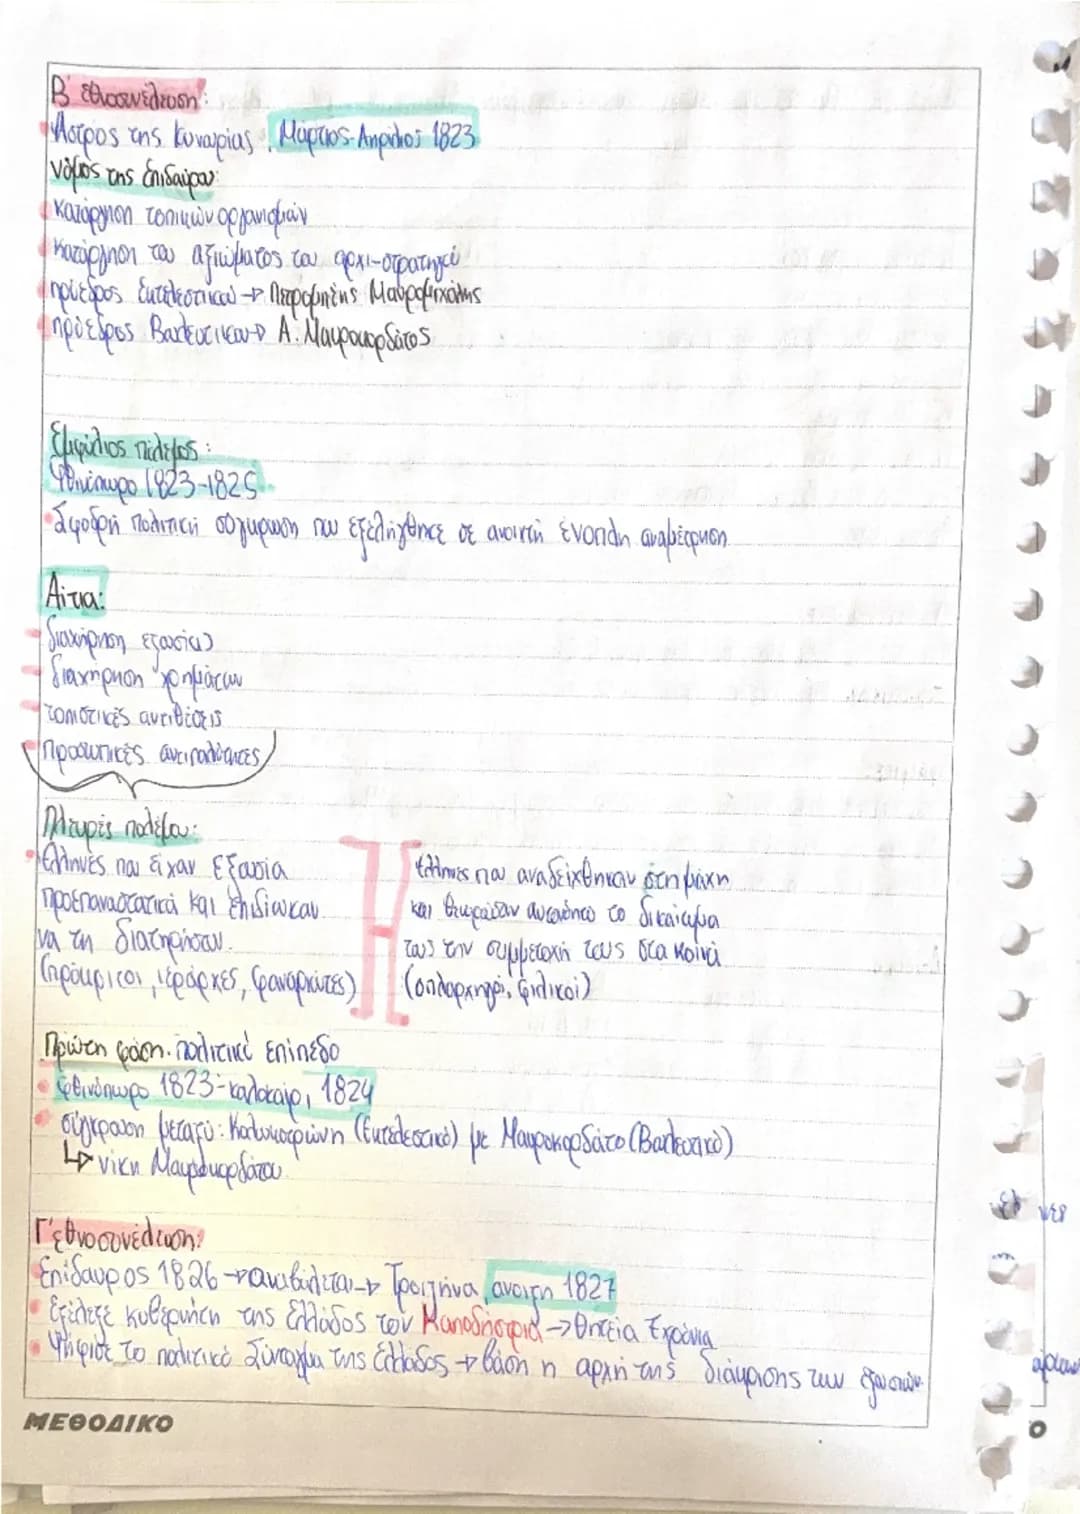 Β' Εθνοσυνέλευση:
Άστρος της Κυνουρίας, Μάρτιος-Απρίλιος 1823
νόμος της Επιδαύρου:
κατάργηση τοπικών οργανισμών
κατάργηση του αξιώματος του αρχι-στρατηγού
πρόεδρος Εκτελεστικού → Πετρόμπεης Μαυρομιχάλης
πρόεδρος Βουλευτικού → Α. Μαυροκορδάτος
Εμφύλιος πόλεμος:
Φθινόπωρο 1823-1825
Σφοδρή πολιτική σύγκρουση που εξελήχθηκε σε ανοιχτή ένοπλη αναμέτρηση.
Αίτια:
διαχείρηση εξουσίας
διαχήρηση χρημάτων
τοπιστικές αντιθέσεις
προσωπικές αντιπαλότητες
Πλευρές πολέμου:
Έλληνες που είχαν εξουσία
προεπαναστατικά και επιδίωκαν
να τη διατηρήσουν.
(πρόκριτοι, ιεράρχες, Φαναριώτες)
Η
Έλληνες που αναδείχθηκαν στη μάχη
και θεωρούσαν αυτονόητο το δικαίωμα
τους την συμμετοχή τους στα κοινά
(οπλαρχηγοί, φιλικοί)
Πρώτη φάση: πολιτικό επίπεδο
φθινόπωρο 1823-καλοκαίρι 1824
σύγκρουση μεταξύ: Κολοκοτρώνη (Εκτελεστικό) με Μαυροκορδάτο (Βουλευτικό)
↳ νίκη Μαυροκορδάτου
Γ' εθνοσυνέλευση:
Επίδαυρος 1826 → αναβάλλεται → Τροιζήνα, άνοιξη 1827
Εξέλεξε κυβερνήτη της Ελλάδος τον Καποδήστρια → Θητεία 7χρόνια
Ψήφισε το πολιτικό Σύνταγμα της Ελλάδος → βάση η αρχή της διάκρισης των εξουσιών.
ΜΕΘΟΔΙΚΟ